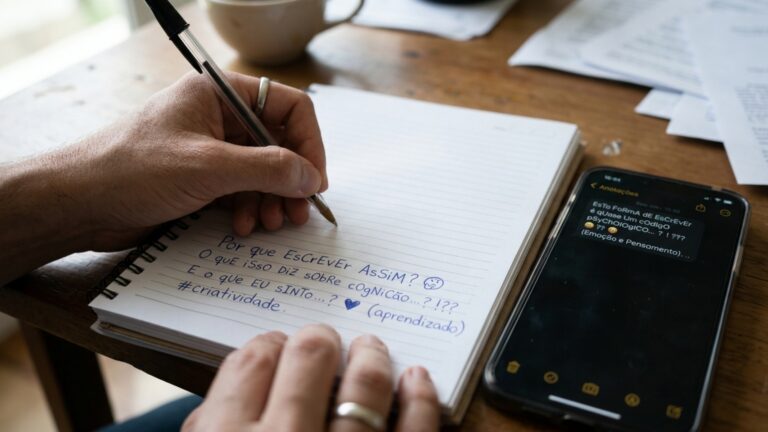 Por que EsCrEvEr AsSiM? ☺
O quE iSso DiZ sObRE cOgNiCão...?!??
E o quE EU sINTo...? ♥ (aprendizado)
#criatividade.
Anotações
EsTa FoRmA dE EsCrEvEr
é qUase Um cOdIgO
pSyChOlOgICO... ? ! ???
😀 ?? 😀
(Emoção e Pensamento)...